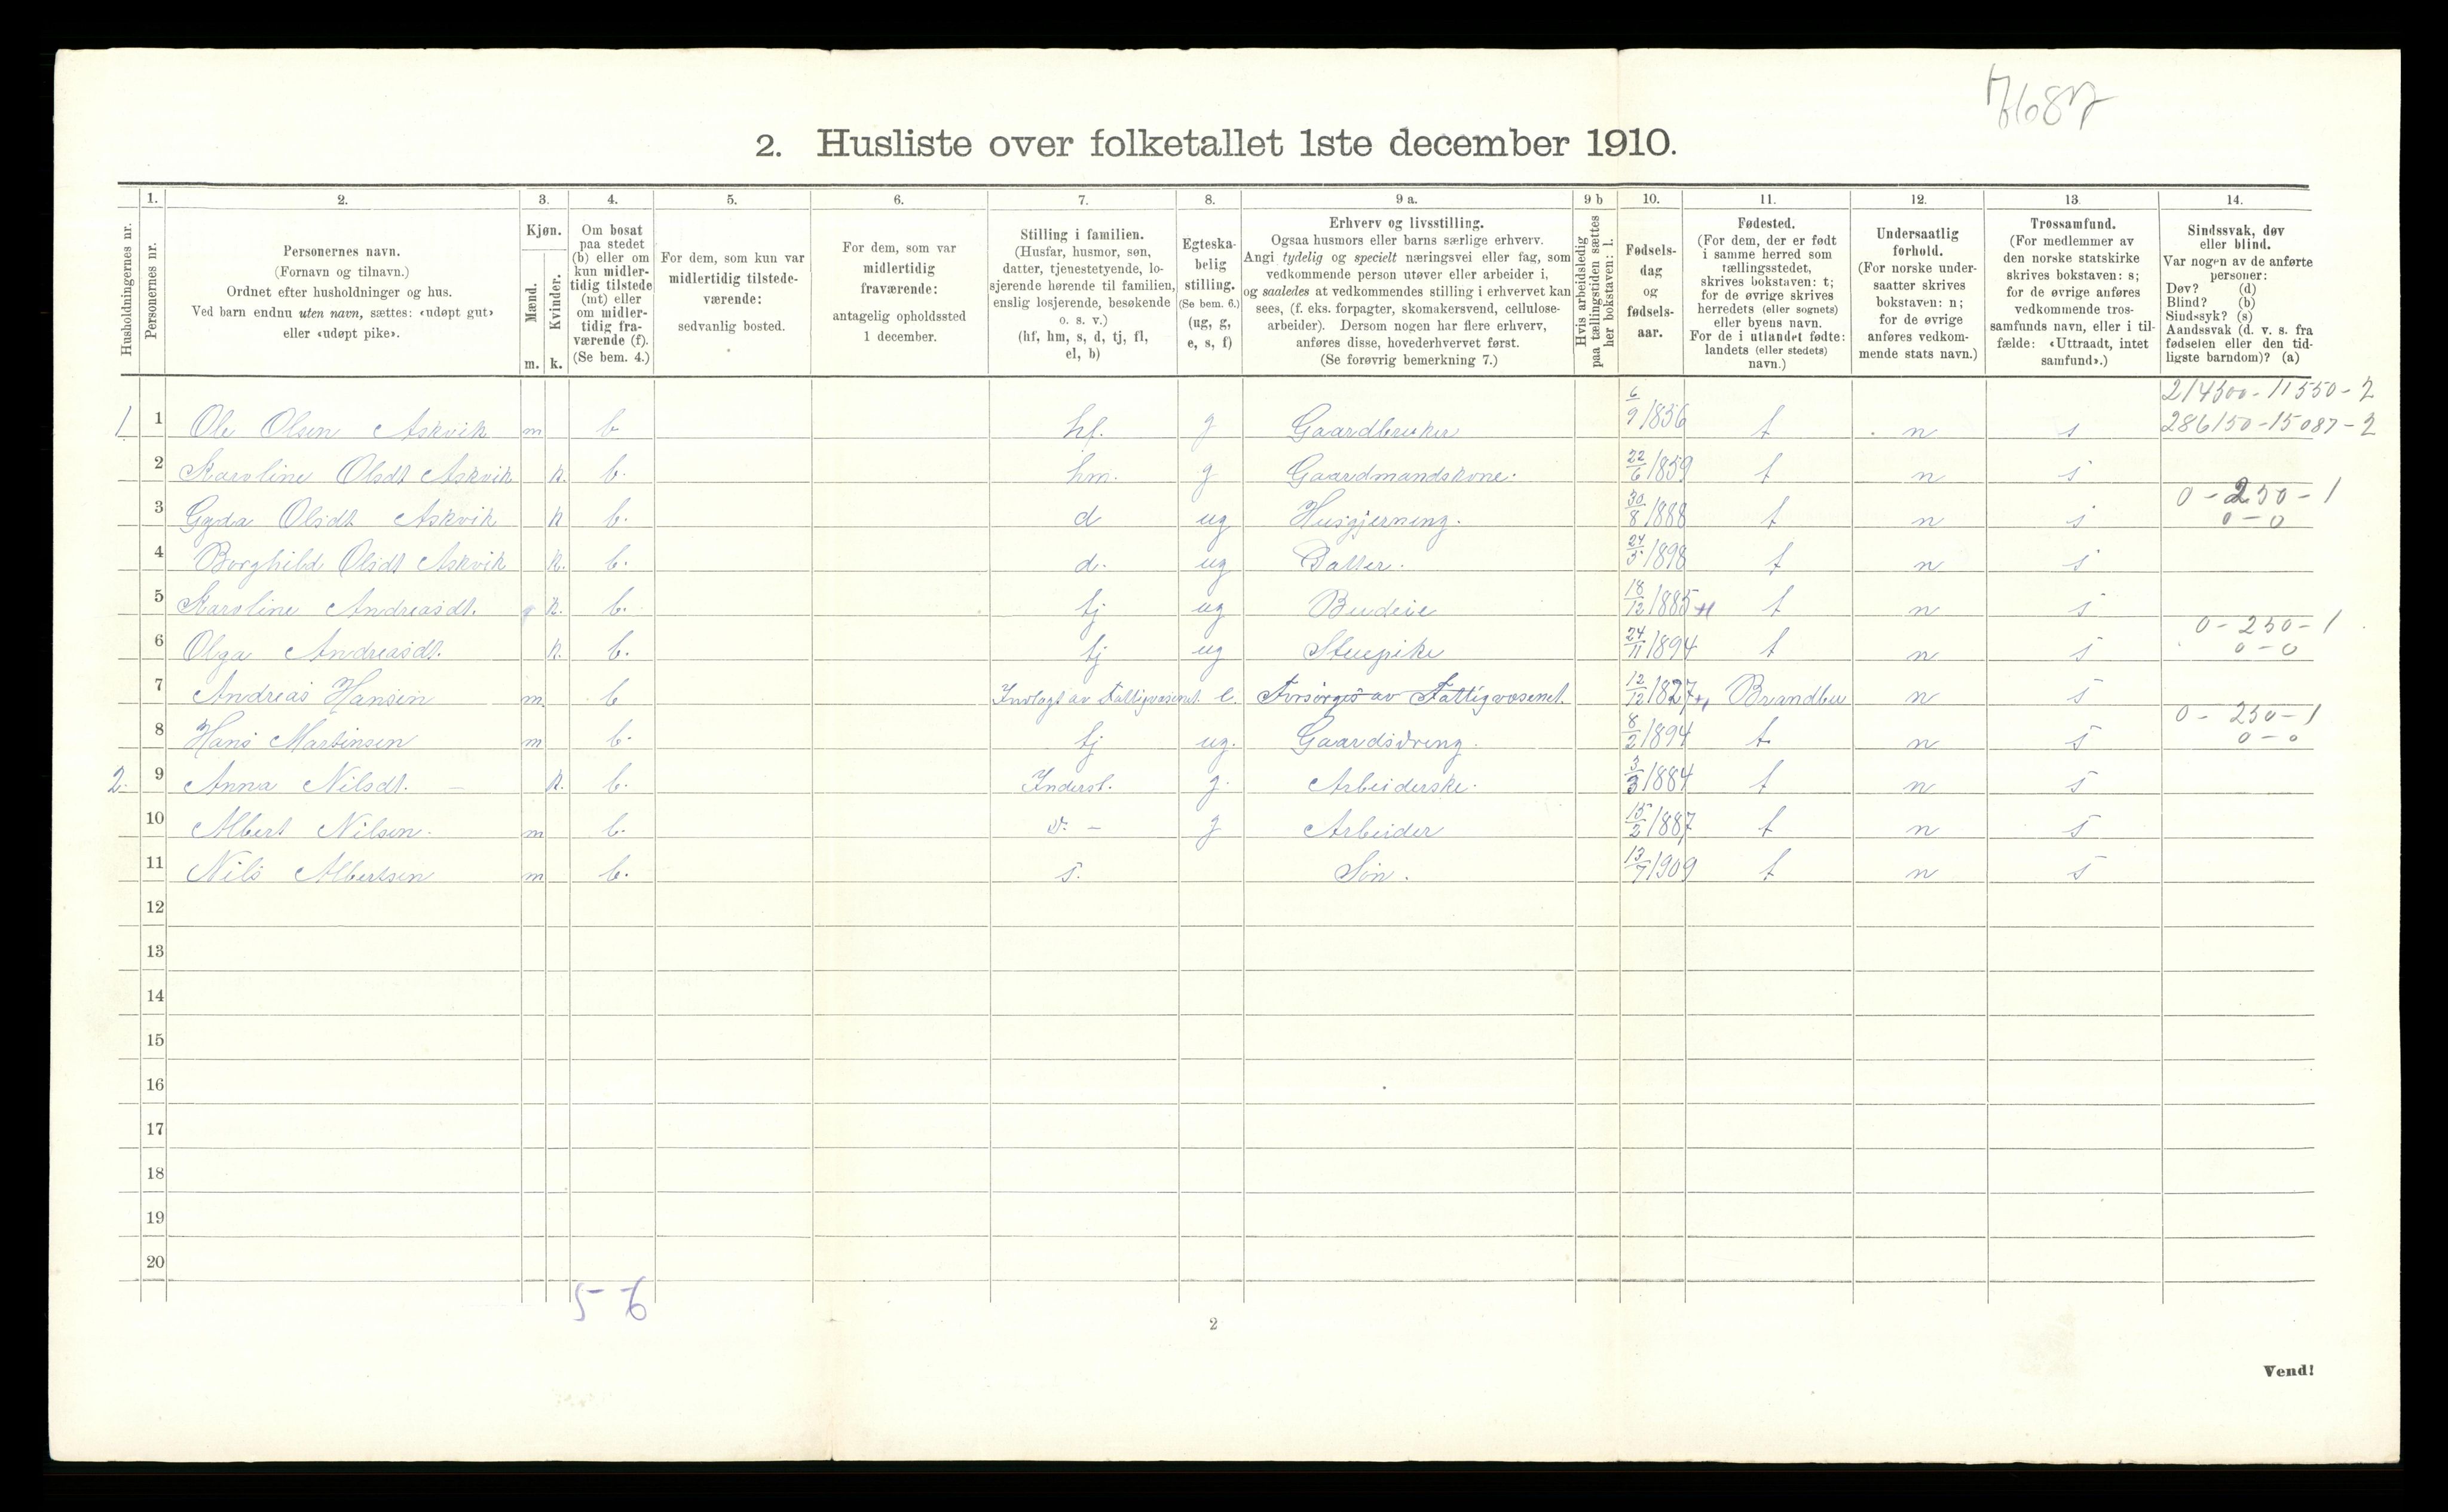 7687
2. Husliste over folketallet 1ste december 1910.
Husholdningernes nr.
1.
Personernes nr.
2.
Personernes navn.
(Fornavn og tilnavn.)
Ordnet efter husholdninger og hus.
Ved barn endnu uten navn, sættes: «udøpt gut»
eller «udøpt pike».
3.
Kjøn.
Mænd.
m.
Kvinder.
k.
4.
Om bosat
paa stedet
(b) eller om
kun midler-
tidig tilstede
(mt) eller
om midler-
tidig fra-
værende (f).
(Se bem. 4.)
5.
For dem, som kun var
midlertidig tilstede-
værende:
sedvanlig bosted.
6.
For dem, som var
midlertidig
fraværende:
antagelig opholdssted
1 december.
7.
Stilling i familien.
(Husfar, husmor, søn,
datter, tjenestetyende, lo-
sjerende hørende til familien,
enslig losjerende, besøkende
o. s. v.)
(hf, hm, s, d, tj, fl,
el, b)
8.
Egteska-
belig
stilling.
(Se bem. 6.)
(ug, g,
e, s, f)
9 a.
Erhverv og livsstilling.
Ogsaa husmors eller barns særlige erhverv.
Angi tydelig og specielt næringsvei eller fag, som
vedkommende person utøver eller arbeider i,
og saaledes at vedkommendes stilling i erhvervet kan
sees, (f. eks. forpagter, skomakersvend, cellulose-
arbeider). Dersom nogen har flere erhverv,
anføres disse, hovederhvervet først.
(Se forøvrig bemerkning 7.)
9 b
Hvis arbeidsledig
paa tællingstiden sættes
her bokstaven: l.
10.
Fødsels-
dag
og
fødsels-
aar.
11.
Fødested.
(For dem, der er født
i samme herred som
tællingsstedet,
skrives bokstaven: t;
for de øvrige skrives
herredets (eller sognets)
eller byens navn.
For de i utlandet fødte:
landets (eller stedets)
navn.)
12.
Undersaatlig
forhold.
(For norske under-
saatter skrives
bokstaven: n;
for de øvrige
anføres vedkom-
mende stats navn.)
13.
Trossamfund.
(For medlemmer av
den norske statskirke
skrives bokstaven: s;
for de øvrige anføres
vedkommende tros-
samfunds navn, eller i til-
fælde: «Uttraadt, intet
samfund».)
14.
Sindssvak, døv
eller blind.
Var nogen av de anførte
personer:
Døv? (d)
Blind? (b)
Sindssyk? (s)
Aandssvak (d. v. s. fra
fødselen eller den tid-
ligste barndom)? (a)
214500-11550-2
1 1 Ole Olsen Askvik m b hf. g Gaardbruker 6/9 1856 t n s 286150-15087-2
2 Karoline Olsdt Askvik k. b. hm. g Gaardmandskone. 22/6 1859 t n s
0-250-1
3 Gyda Olsdt Askvik k b. d ug Husgjerning. 30/8 1888 t n s 0-0
4 Borghild Olsdt Askvik k. b. d. ug Datter. 24/5 1898 t n s
5 Karoline Andreasdt. k. b. tj ug Budeie 18/12 1885 t n s
0-250-1
6 Olga Andreasdt. k. b. tj ug Stuepike 24/11 1894 t n s 0-0
7 Andreas Hansen m. b Indlagt av Fattigvæsenet. e. Forsørges av Fattigvæsenet. 12/12 1827 Brandbu n s
0-250-1
8 Hans Martinsen m b. tj ug. Gaardsdreng. 8/2 1894 t. n s 0-0
2. 9 Anna Nilsdt. k. b. Inderst. g. Arbeiderske. 3/3 1884 t n s
10 Albert Nilsen. m b. g Arbeider 15/2 1887 t n s
11 Nils Albertsen m b. s. Søn. 13/7 1909 t n s
12
13
14
15
16
17
18
19
20
5-6
2
Vend!